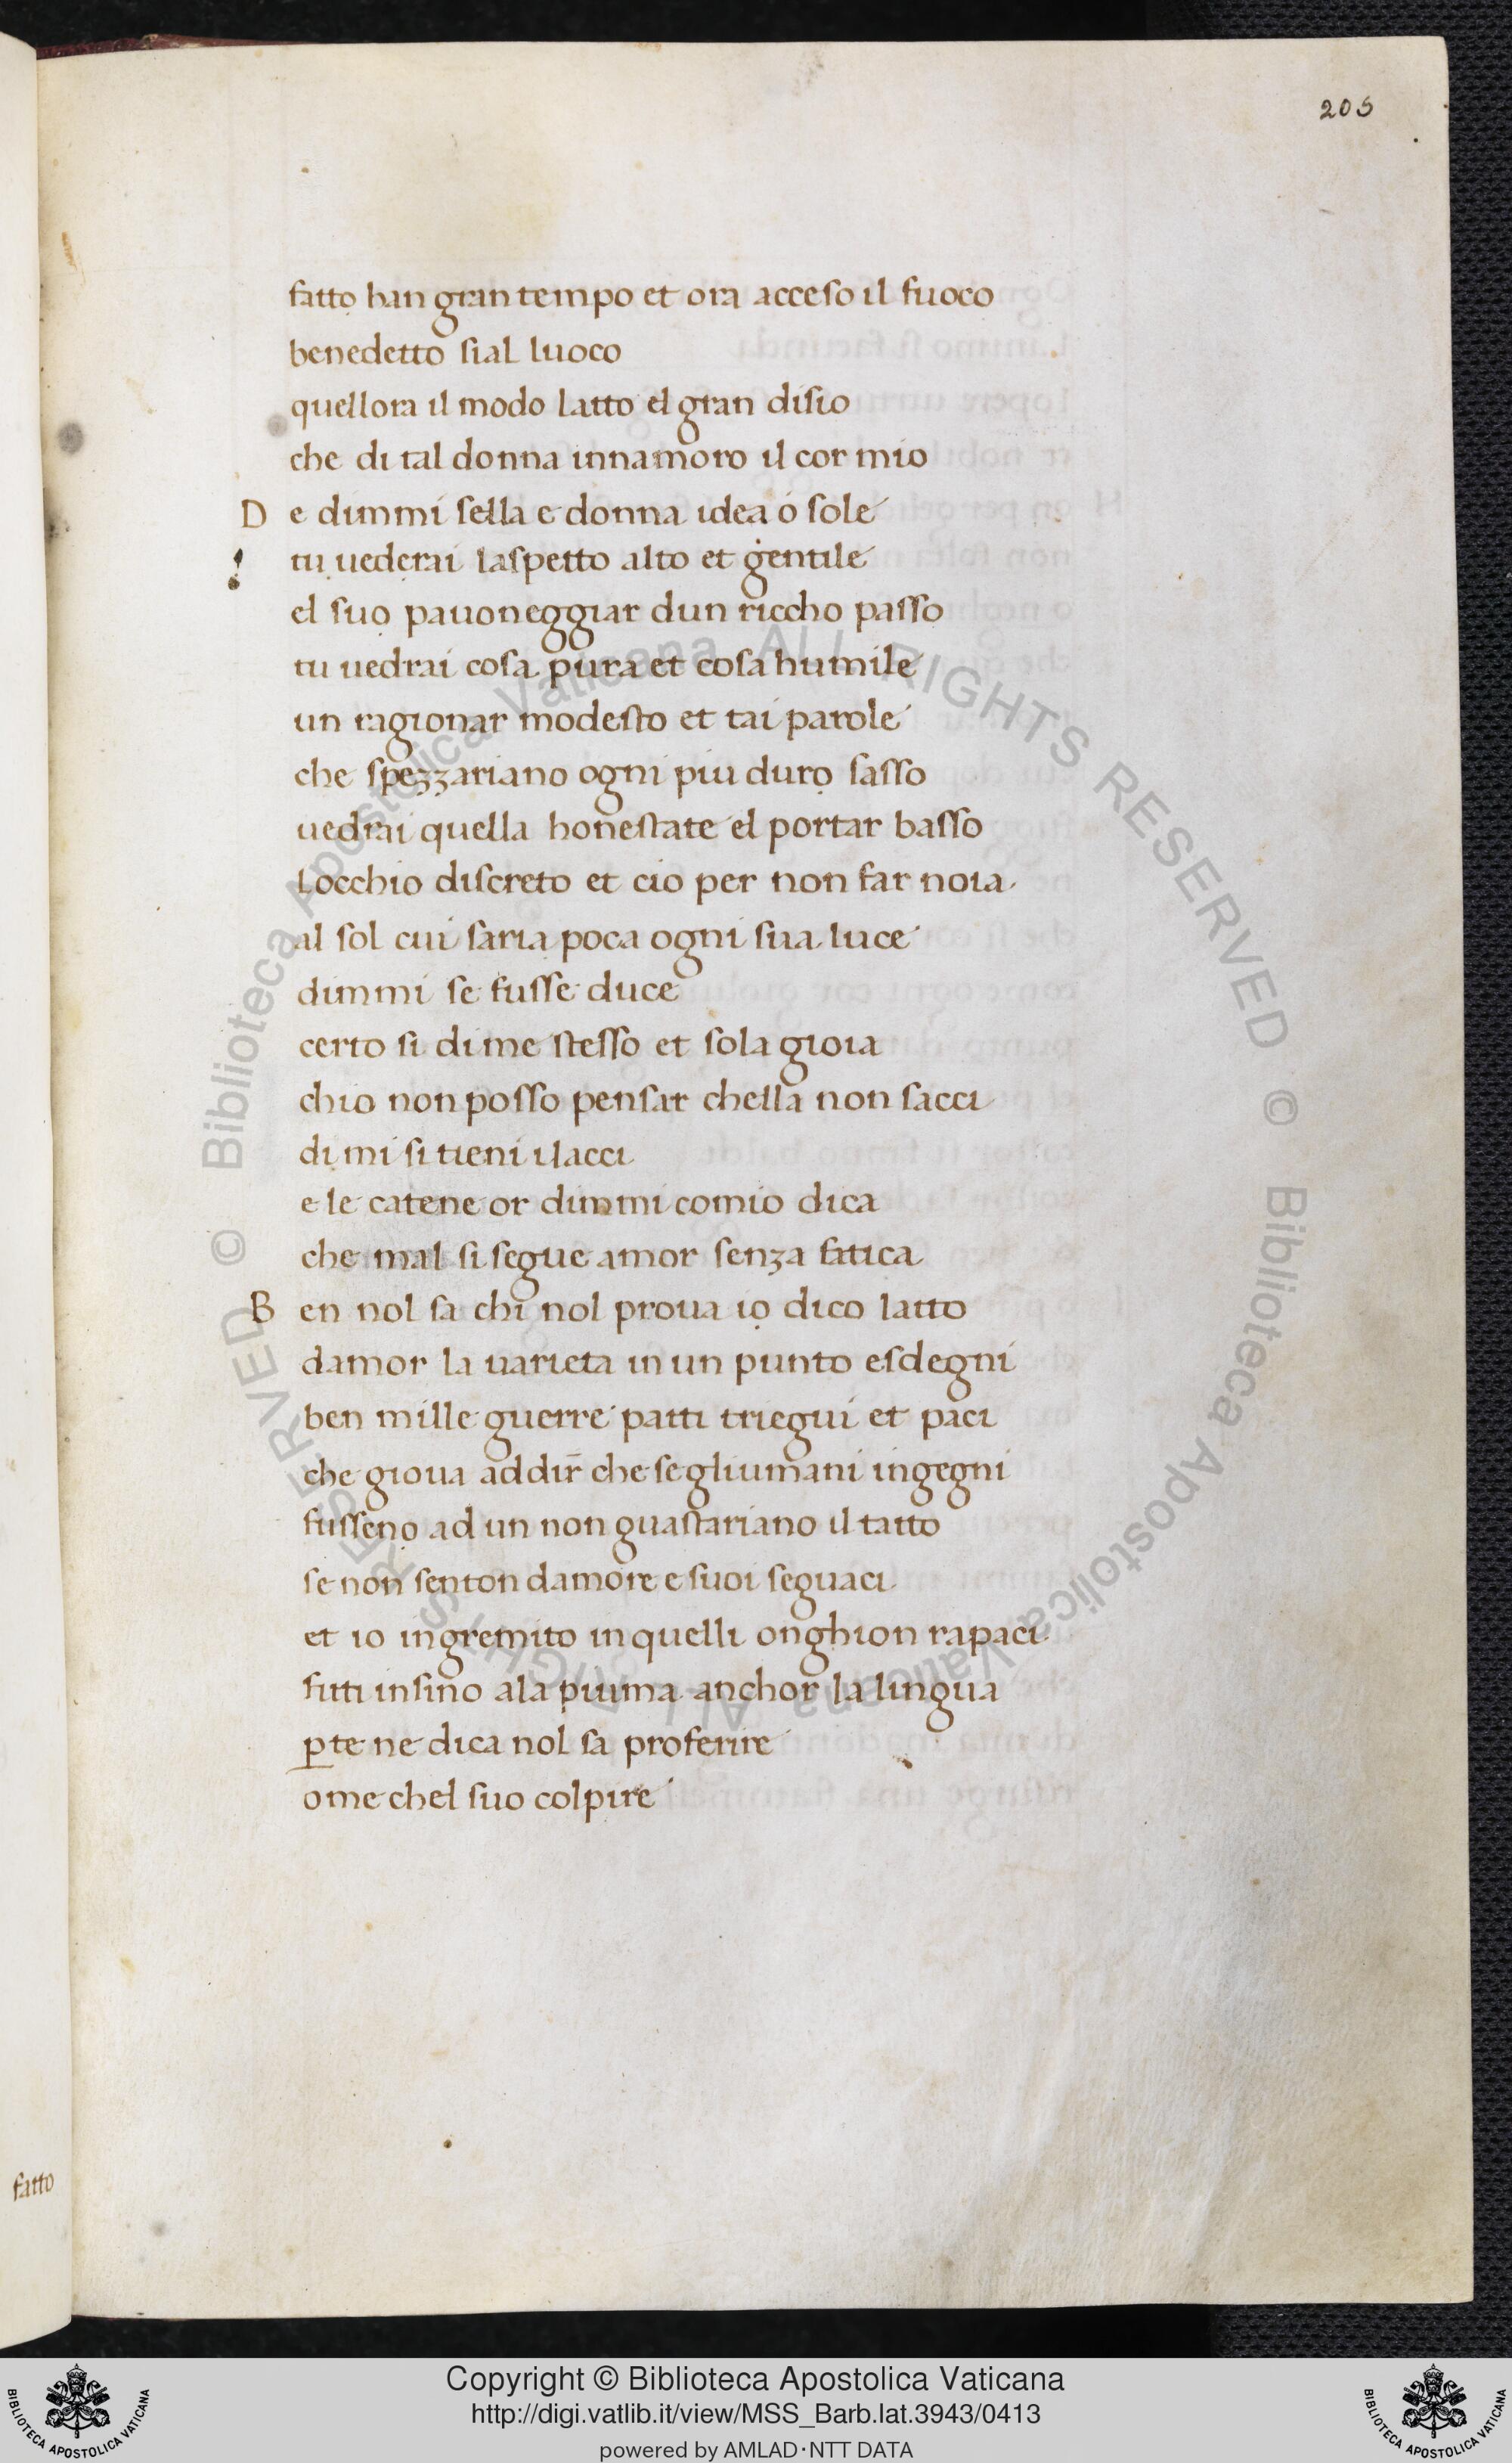 205
fatto han gran tempo et ora acceso il fuoco
benedetto sial luoco
quellora il modo latto el gran disio
che di tal donna innamoro il cor mio
D e dimmi sella e donna idea o sole
tu uederai laspetto alto et gentile
el suo pauoneggiar dun riccho passo
tu uedrai cosa pura et cosa humile
un ragionar modesto et tai parole
che spezzariano ogni piu duro sasso
uedrai quella honestate el portar basso
Locchio discreto et cio per non far noia
al sol cui saria poca ogni sua luce
dimmi se fusse duce
certo si di me stesso et sola gioia
chio non posso pensar chella non sacci
di mi si tieni ilacci
e le catene or dimmi comio dica
che mal si segue amor senza fatica
B en nol sa chi nol proua io dico latto
damor la uarieta in un punto esdegni
ben mille guerre patti triegui et paci
che gioua addir̄ che se gliumani ingegni
fusseno ad un non guastariano il tatto
se non senton damore e suoi seguaci
et io ingremito in quelli onghion rapaci
fitti insino ala piuma anchor la lingua
ꝑte ne dica nol sa proferire
ome chel suo colpire
fatto
Copyright © Biblioteca Apostolica Vaticana
http://digi.vatlib.it/view/MSS_Barb.lat.3943/0413
powered by AMLAD·NTT DATA